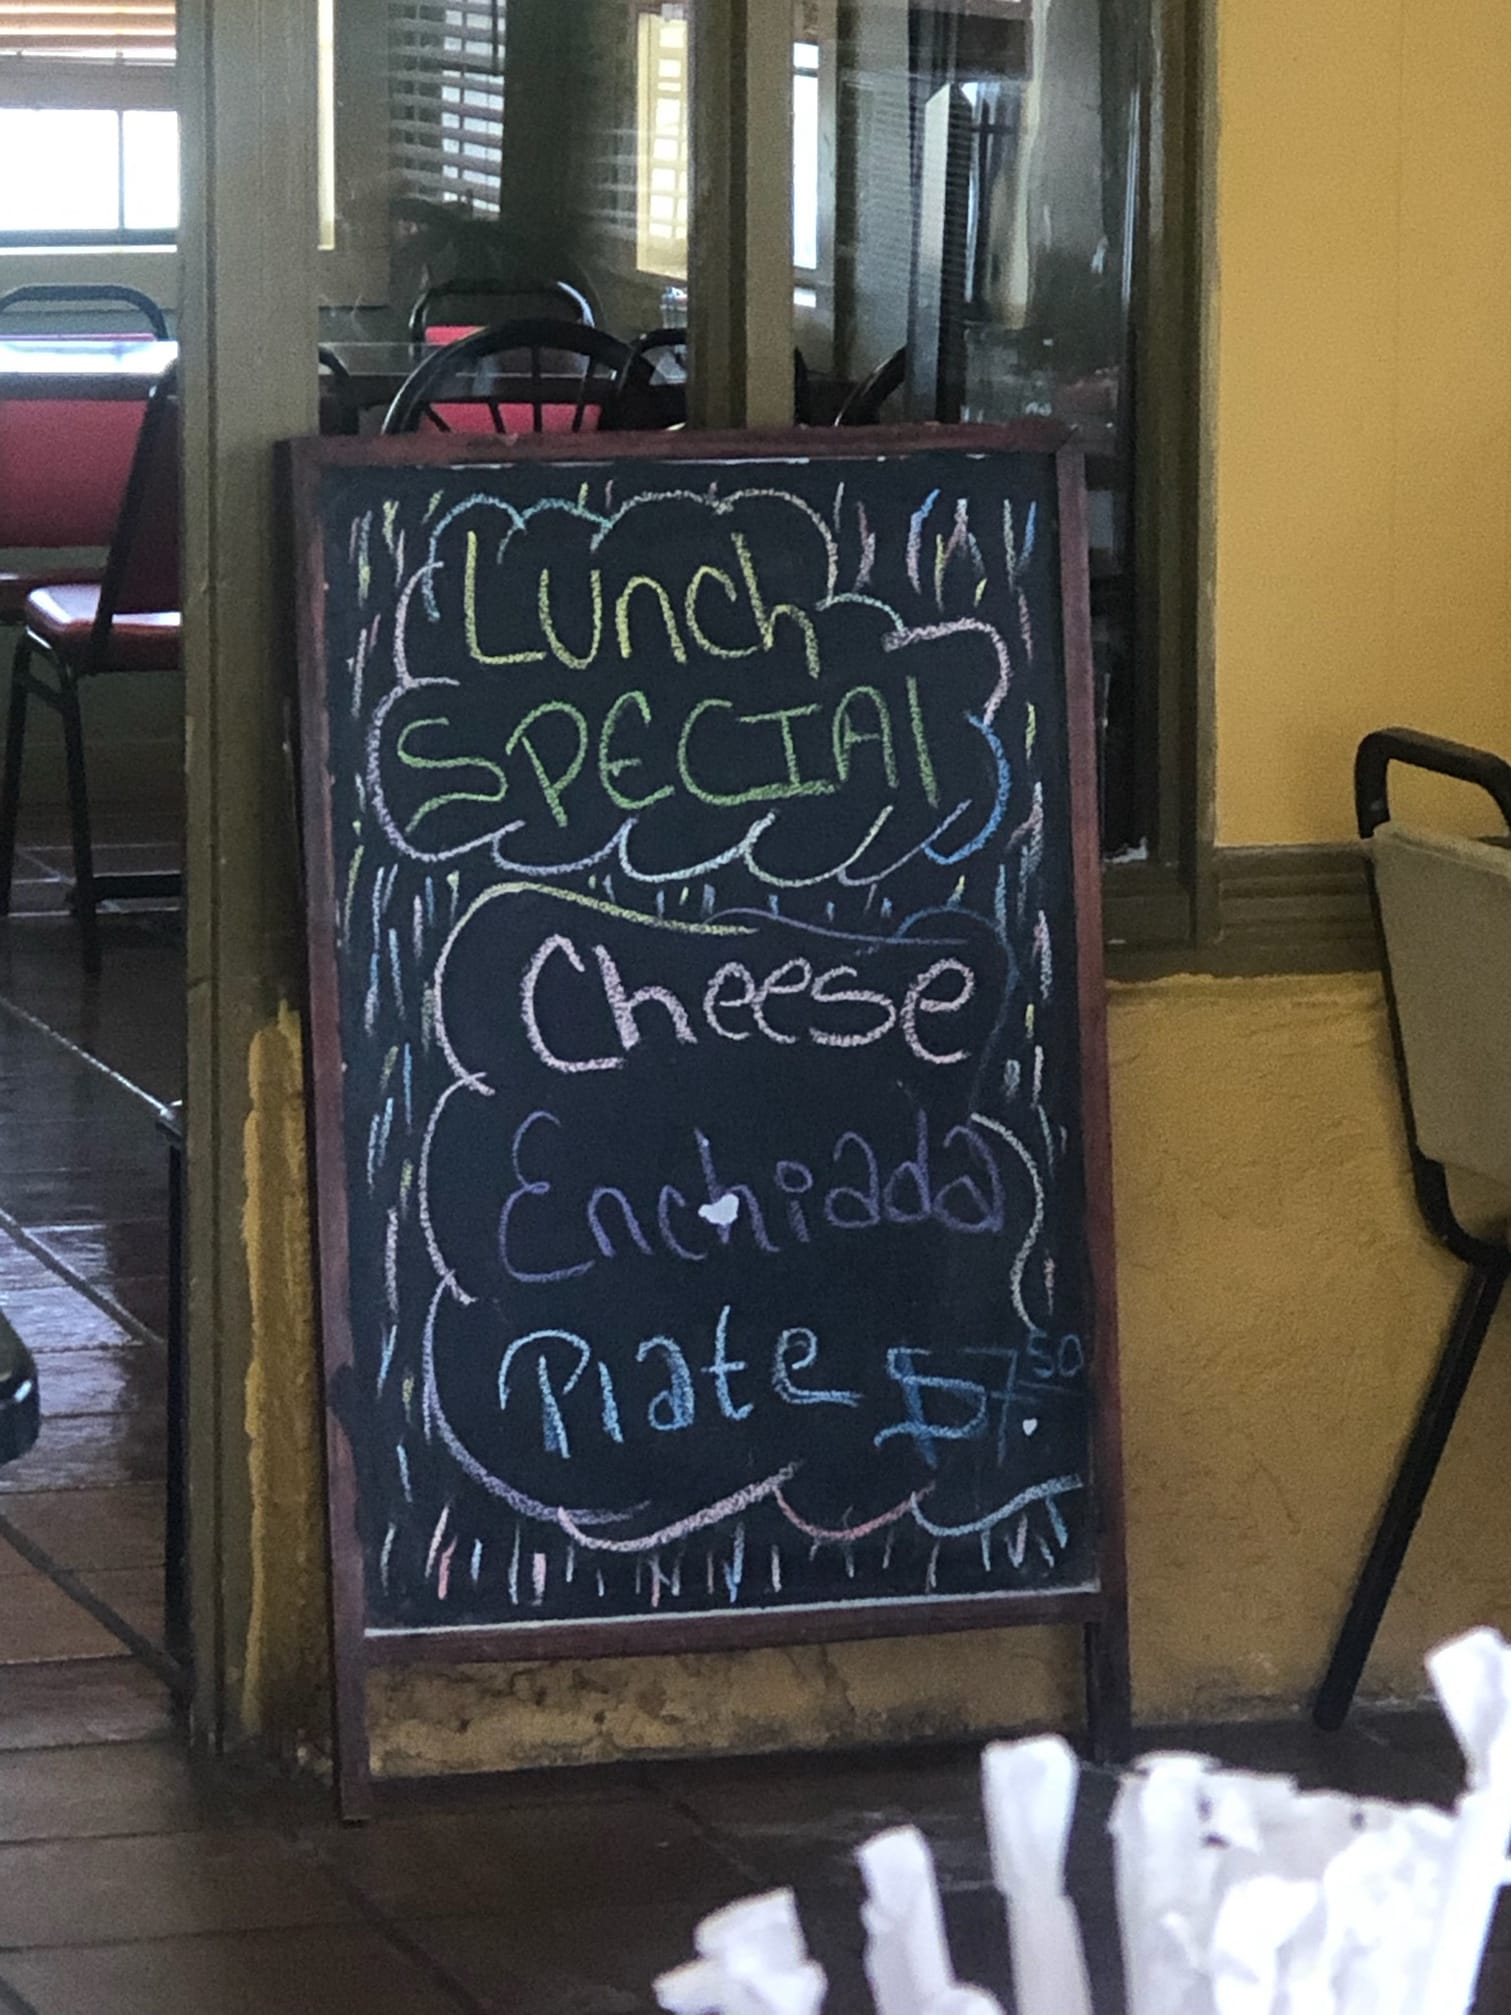 Lunch
SPECIAl
Cheese
Enchiada
Plate $7.50